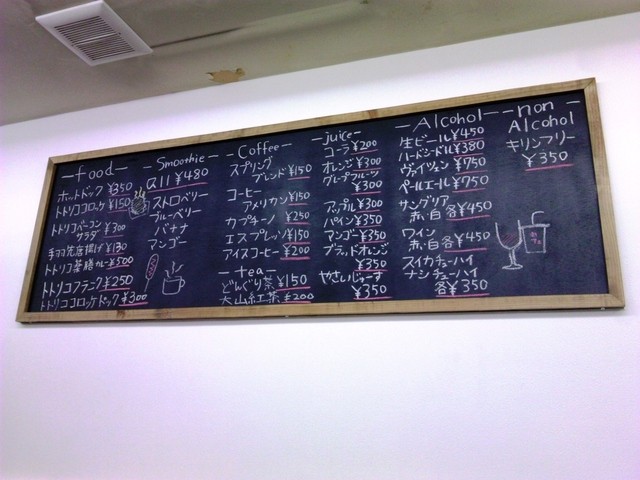 -food-
ホットドッグ ¥350
トトリココロッケ ¥150
トトリコベーコン
サラダ ¥300
手羽先唐揚げ ¥130
トトリコ薬膳カレー ¥500
トトリコフランク ¥250
トトリココロッケドック ¥300
-Smoothie-
All ¥480
ストロベリー
ブルーベリー
バナナ
マンゴー
-Coffee-
スプリング
ブレンド ¥150
コーヒー
アメリカン ¥150
カプチーノ ¥250
エスプレッソ ¥150
アイスコーヒー ¥200
-tea-
どんぐり茶 ¥150
大山紅茶 ¥200
-juice-
コーラ ¥200
オレンジ ¥300
グレープフルーツ
¥300
アップル ¥300
パイン ¥350
マンゴー ¥350
ブラッドオレンジ
¥350
やさいじゅーす
¥350
-Alcohol-
生ビール ¥450
ハードシードル ¥380
ヴァイツェン ¥750
ペールエール ¥750
サングリア
赤・白 各¥450
ワイン
赤・白 各¥450
スイカチューハイ
ナシチューハイ
各¥350
-non-
Alcohol
キリンフリー
¥350